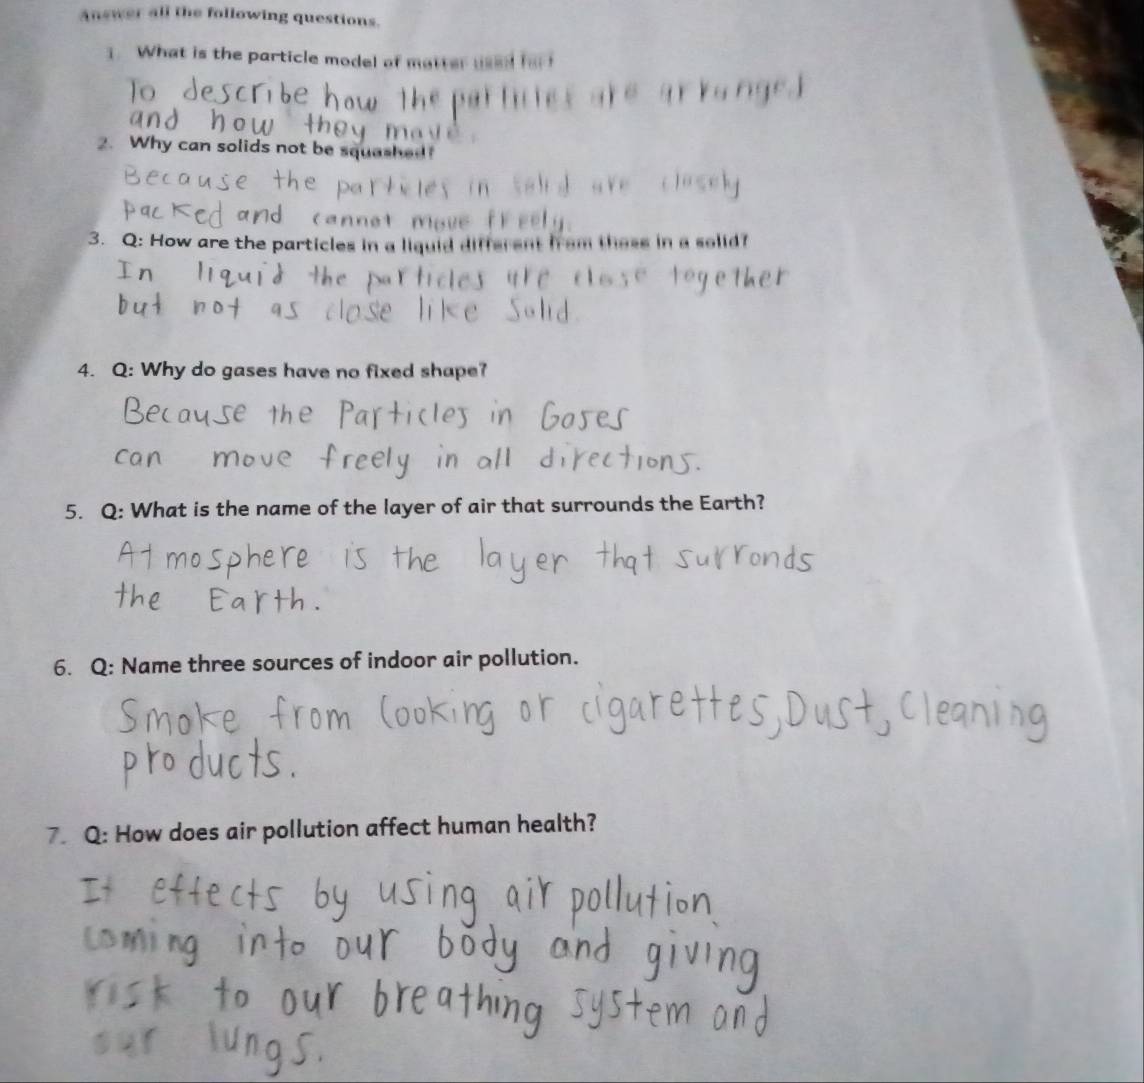 Answer all the following questions.
1. What is the particle model of matter used for?
To describe how the particles are arranged
and how they move.
2. Why can solids not be squashed?
Because the particles in solid are closely
packed and cannot move freely.
3. Q: How are the particles in a liquid different from those in a solid?
In liquid the particles are close together
but not as close like Solid.
4. Q: Why do gases have no fixed shape?
Because the Particles in Gases
can move freely in all directions.
5. Q: What is the name of the layer of air that surrounds the Earth?
Atmosphere is the layer that surronds
the Earth.
6. Q: Name three sources of indoor air pollution.
Smoke from Cooking or cigarettes, Dust, Cleaning
products.
7. Q: How does air pollution affect human health?
It effects by using air pollution
coming into our body and giving
risk to our breathing system and
our lungs.